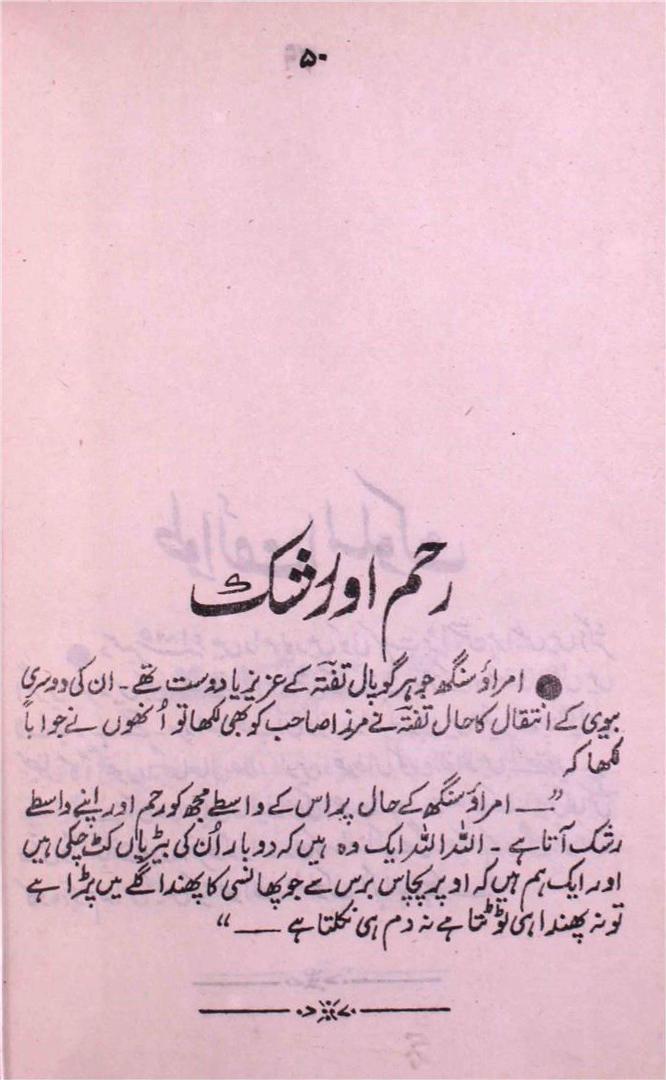 ۵۰
رحم اور رشک
● امراؤ سنگھ جو ہر گوپال تفتہؔ کے عزیز یا دوست تھے۔ ان کی دوسری
بیوی کے انتقال کا حال تفتہؔ نے مرزا صاحب کو بھی لکھا تو اُنھوں نے جواباً
لکھا کہ
”— امراؤ سنگھ کے حال پر اس کے واسطے مجھ کو رحم اور اپنے واسطے
رشک آتا ہے۔ اللہ اللہ ایک وہ ہیں کہ دو بار اُن کی بیڑیاں کٹ چکی ہیں
اور ایک ہم ہیں کہ اوپر پچاس برس سے جو پھانسی کا پھندا گلے میں پڑا ہے
تو نہ پھندا ہی ٹوٹتا ہے نہ دم ہی نکلتا ہے —“